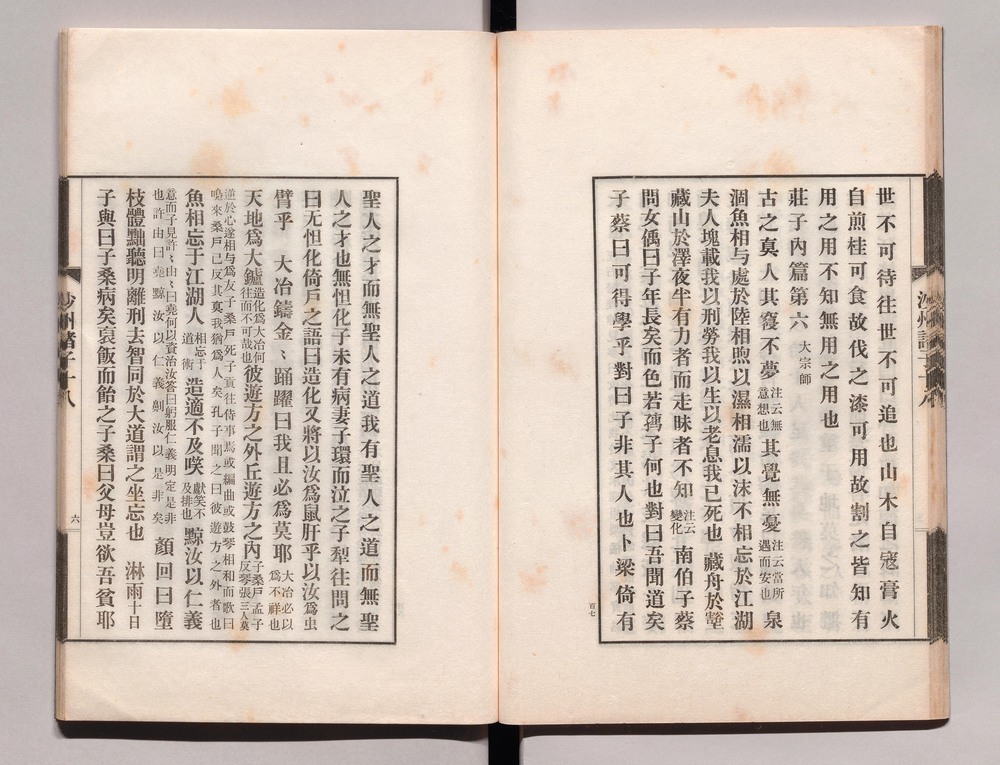 世不可待往世不可追也山木自寇膏火
自煎桂可食故伐之漆可用故割之皆知有
用之用不知無用之用也
莊子內篇第六 大宗師
古之真人其寢不夢 注云無意想也 其覺無憂 注云當所遇而安也 泉
涸魚相与處於陸相煦以濕相濡以沫不相忘於江湖
夫人塊載我以刑勞我以生以老息我已死也 藏舟於壑
藏山於澤夜半有力者而走昧者不知 注云變化 南伯子蔡
問女偊曰子年長矣而色若孺子何也對曰吾聞道矣
子蔡曰可得學乎對曰子非其人也卜梁倚有
百七
聖人之才而無聖人之道我有聖人之道而無聖
人之才也無怛化子未有病妻子環而泣之子犁往問之
曰无怛化倚戶之語曰造化又將以汝爲鼠肝乎以汝爲虫
臂乎 大冶鑄金〻踊躍曰我且必爲莫耶 大冶必以爲不祥也
天地爲大鑪 造化爲大冶何往而不可哉也 彼遊方之外丘遊方之內 子桑戶孟子反琴張三人莫
逆於心遂相与爲友子桑戶死子貢往侍事焉或編曲或鼓琴相和而歌曰
嗚來桑戶已反其真我猶爲人矣孔子聞之曰彼遊方之外者也
魚相忘于江湖人 相忘于道術 造適不及咲 獻笑不及排也 黥汝以仁義
意而子見許〻由〻曰堯何以資治汝答曰躬服仁義明定是非
也許由曰堯黥汝以仁義劓汝以是非矣 顏回曰墮
枝體黜聽明離刑去智同於大道謂之坐忘也 淋雨十日
子與曰子桑病矣裹飯而飴之子桑曰父母豈欲吾貧耶
沙州諸子十八
六